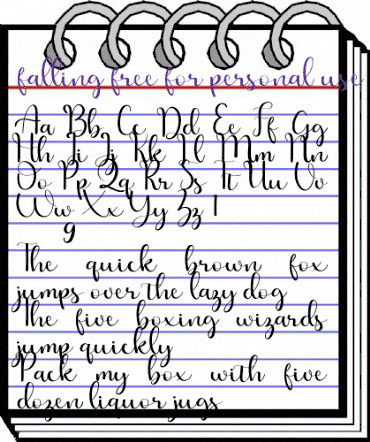 falling free for personal use
Aa Bb Cc Dd Ee Ff Gg
Hh Ii Jj Kk Ll Mm Nn
Oo Pp Qq Rr Ss Tt Uu Vv
Ww Xx Yy Zz 1
9
The quick brown fox
jumps over the lazy dog
The five boxing wizards
jump quickly
Pack my box with five
dozen liquor jugs